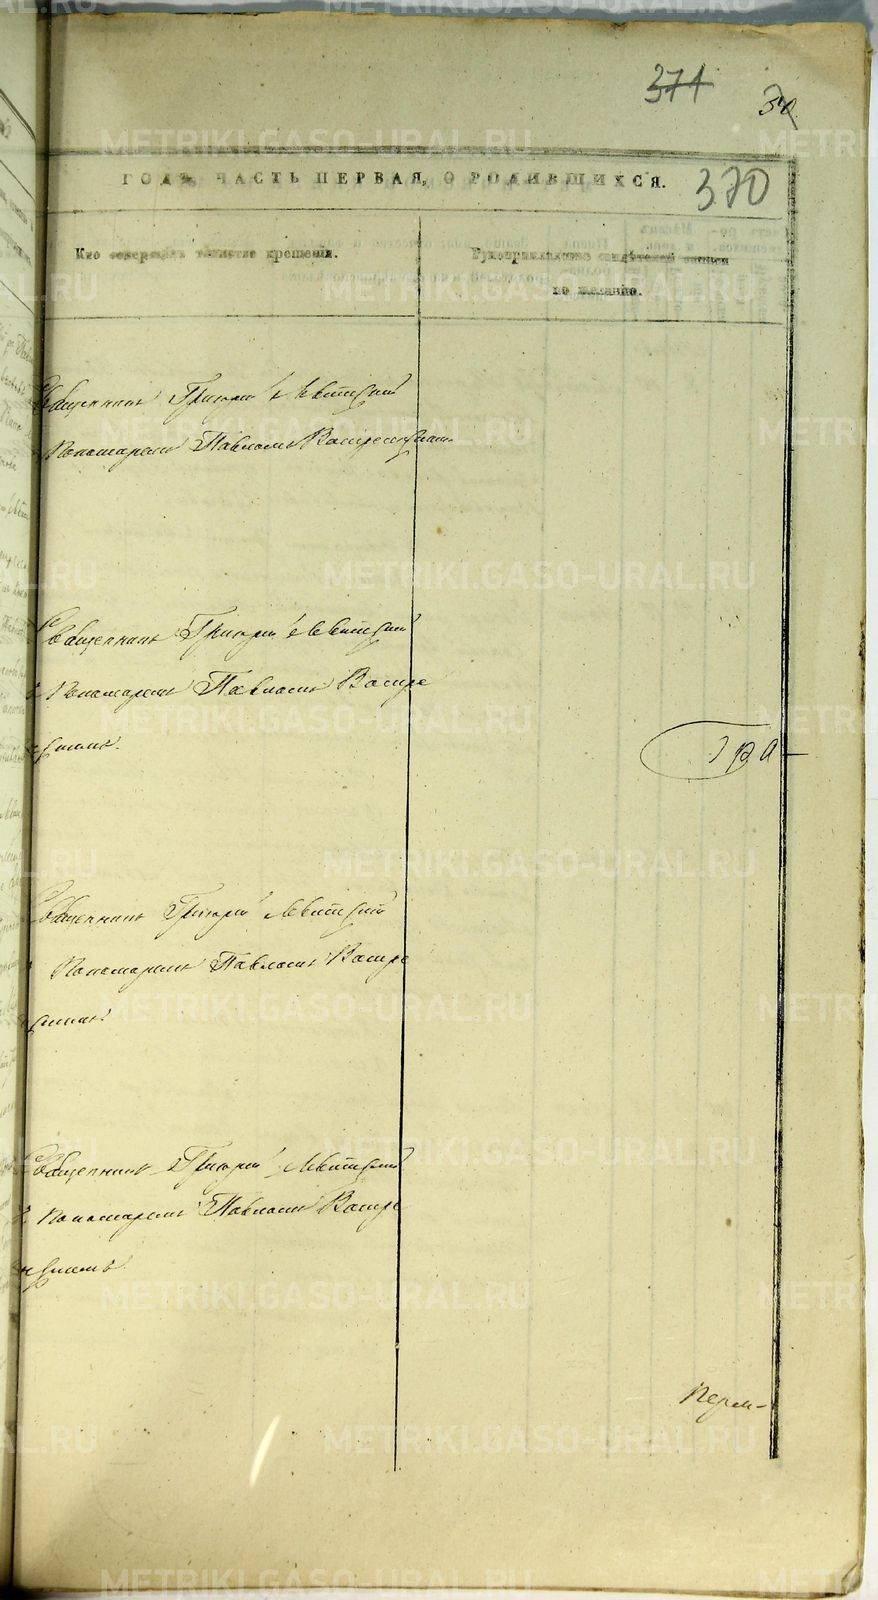 371
30
370
ГОДЪ, ЧАСТЬ ПЕРВАЯ, О РОДИВШИХСЯ.
Кто совершалъ таинство крещенія.
Рукоприкладство свидѣтелей записи
по желанію.
Священникъ Григорій Левитскій
Пономаремъ Павломъ
Священникъ Григорій Левитскій
Пономаремъ Павломъ
Гра-
Священникъ Григорій Левитскій
Пономаремъ Павломъ
Священникъ Григорій Левитскій
Пономаремъ Павломъ
Перм-
METRIKI.GASO-URAL.RU